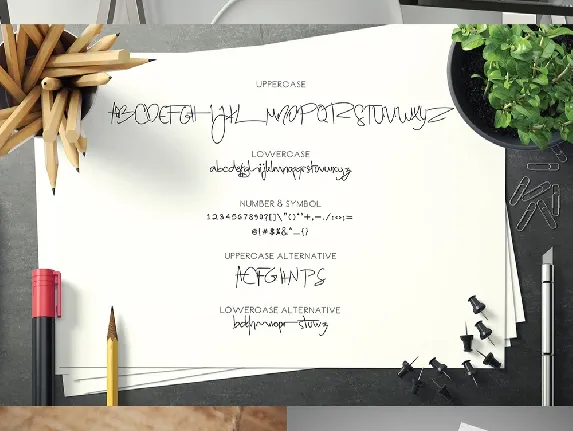 UPPERCASE
ABCDEFGHIJKLMNOPQRSTUVWXYZ
LOWERCASE
abcdefghijklmnopqrstuvwxyz
NUMBER & SYMBOL
UPPERCASE ALTERNATIVE
AEFGHNPS
LOWERCASE ALTERNATIVE